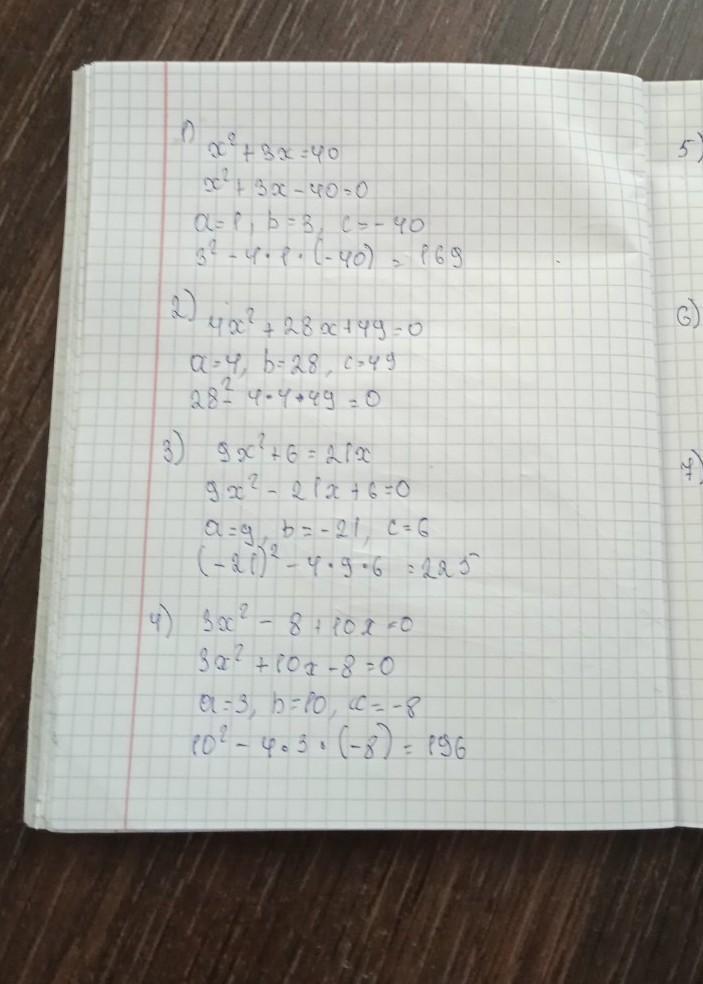 1)
x² + 3x = 40
x² + 3x - 40 = 0
a = 1, b = 3, c = - 40
3² - 4 · 1 · (-40) = 169
2)
4x² + 28x + 49 = 0
a = 4, b = 28, c = 49
28² - 4 · 4 · 49 = 0
3) 9x² + 6 = 21x
9x² - 21x + 6 = 0
a = 9, b = -21, c = 6
(-21)² - 4 · 9 · 6 = 225
4) 3x² - 8 + 10x = 0
3x² + 10x - 8 = 0
a = 3, b = 10, c = -8
10² - 4 · 3 · (-8) = 196
5)
6)
7)